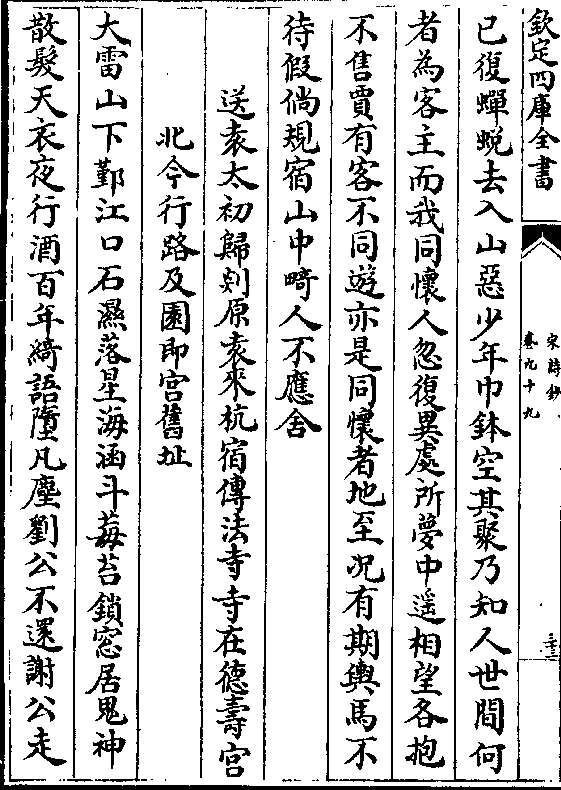 欽定四庫全書
宋詩鈔
卷九十九
三十三
已復蟬蛻去入山惡少年巾鉢空其聚乃知人世間何
者為客主而我同懷人忽復異處所夢中遥相望各抱
不售賈有客不同遊亦是同懷者地至况有期輿馬不
待假倘規宿山中畸人不應舍
送袁太初歸剡原袁來杭宿傳法寺寺在德壽宫
北今行路及園即宫舊址
大雷山下鄞江口石濕落星海涵斗莓苔鎖窓居鬼神
散髮天衣夜行酒百年綺語墮凡塵劉公不還謝公走